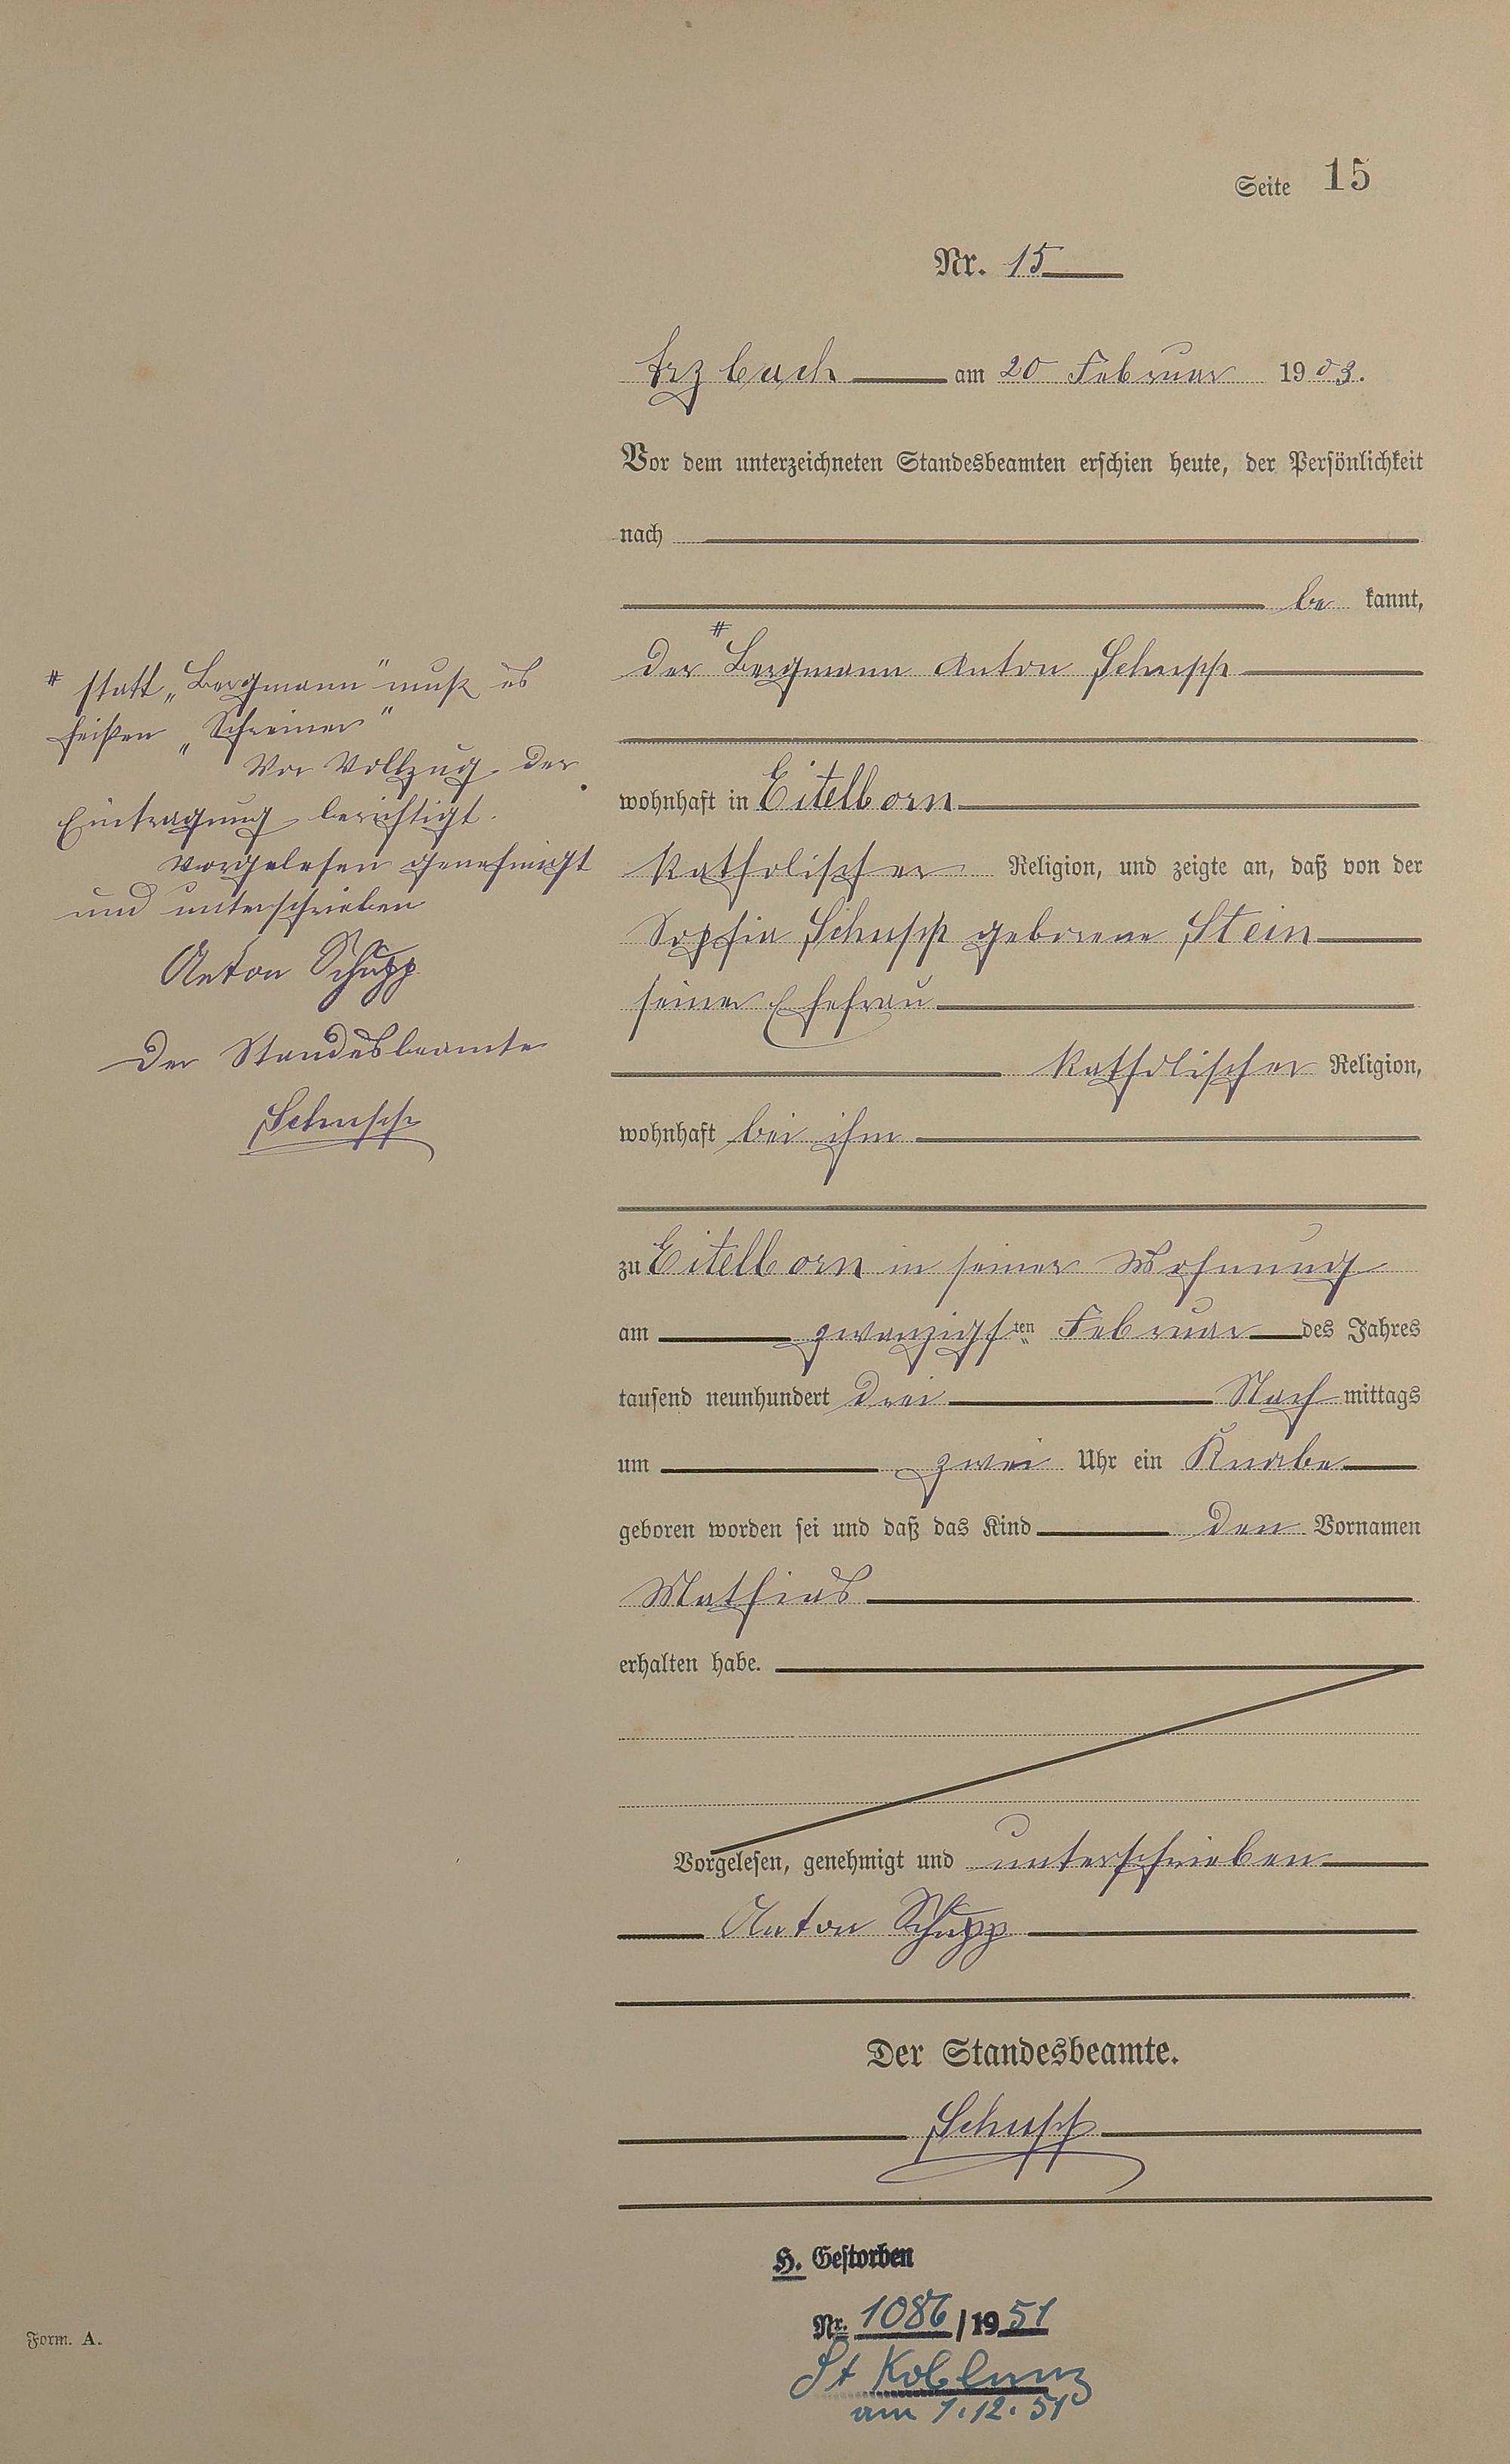 Seite 15
Nr. 15
Arzbach am 20 Februar 1903.
Vor dem unterzeichneten Standesbeamten erschien heute, der Persönlichkeit
nach
be kannt,
der # Bergmann Anton Schupp
wohnhaft in Eitelborn
katholischer Religion, und zeigte an, daß von der
Sophia Schupp geborene Stein
seiner Ehefrau
katholischer Religion,
wohnhaft bei ihm
zu Eitelborn in seiner Wohnung
am zwanzigsten Februar des Jahres
tausend neunhundert drei Nachmittags
um zwei Uhr ein Knabe
geboren worden sei und daß das Kind den Vornamen
Mathias
erhalten habe.
Vorgelesen, genehmigt und unterschrieben
Anton Schupp
Der Standesbeamte.
Schupp
# statt „Bergmann" muß es
heißen „Schreiner"
Vor Vollzug der
Eintragung berichtigt.
Vorgelesen genehmigt
und unterschrieben
Anton Schupp
Der Standesbeamte
Schupp
H. Gestorben
Nr. 1086/1951
St Koblenz
am 1.12.51
Form. A.